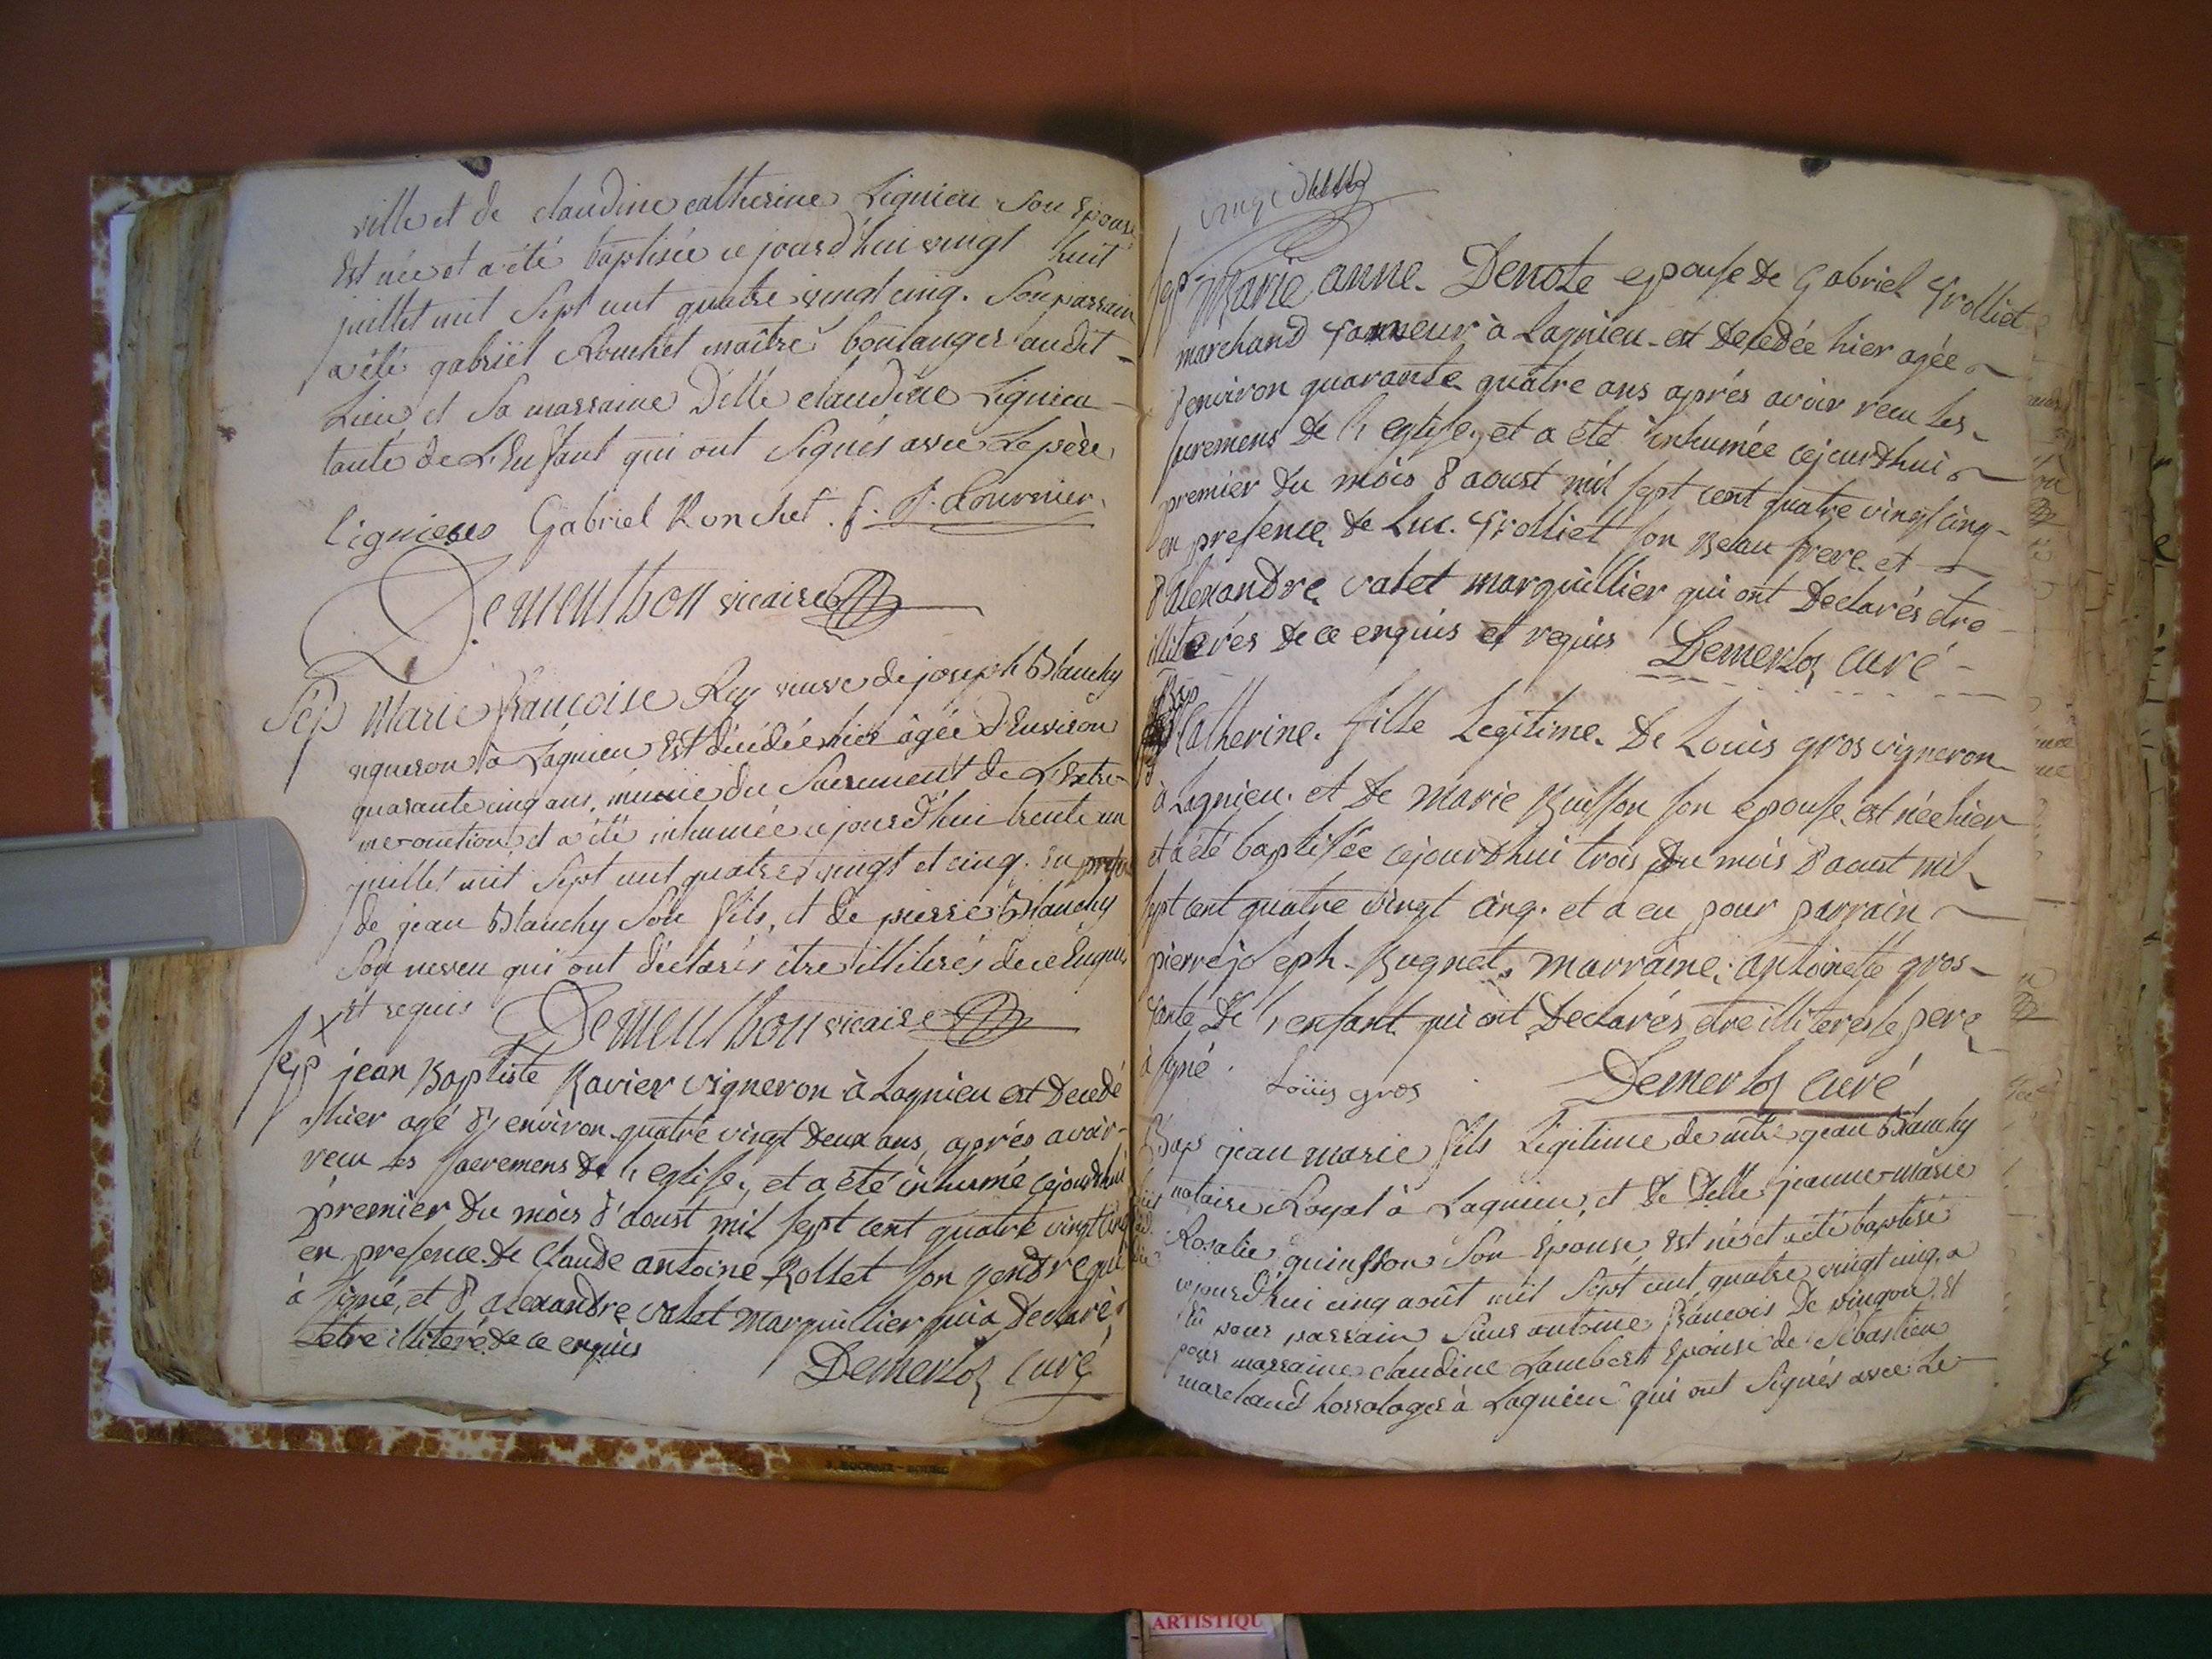 ville et de claudine catherine Lignieu Son Epouse
Est née et a été baptisée ce jourd'hui vingt huit
juillet mil Sept cent quatre vingt cinq. Son parrain
a été gabriël Ronchet maître boulanger audit
Lieu et Sa marraine D'elle claudine Lignieu
tante de L'Enfant qui ont Signés avec Le père
lignieu Gabriel Ronchet. f. J. Cournier.
Dementhon vicaire
Sép Marie françoise Rey veuve de joseph Blanchy
vigneron à Lagnieu Est décédée hier âgée d'Environ
quarante cinq ans, munie du Sacrement de L'Extrê-
me-onction et a été inhumée ce jourd'hui trente un
juillet mil Sept cent quatre vingt et cinq. En presence
de jean Blanchy Son fils, et de pierre Blanchy
Son neveu qui ont déclarés être illiterés de ce Enquis
et requis Dementhon vicaire
sep jean Baptiste Ravier vigneron à Lagnieu est Decedé
hier agé d'environ quatre vingt Deux ans, aprés avoir
recu les sacremens de l'eglise, et a été inhumé cejourdhui
premier Du mois d'aoust mil sept cent quatre vingt cinq
en presence de Claude antoine Rollet son gendre qui
à signé, et d'alexandre valet marguillier qui a Declaré
etre illiteré de ce enquis
Demerloz curé
vingt
sep Marie anne Denote epouse de Gabriel Trolliet
marchand tanneur à Lagnieu est Decedée hier agée
d'environ quarante quatre ans aprés avoir recu les
sacremens de l'eglise, et a été inhumée cejourdhui
premier du mois d'aoust mil sept cent quatre vingt cinq
en presence de Luc Trolliet son Beau frere et
d'alexandre valet marguillier qui ont Declarés etre
illiterés de ce enquis et requis Demerloz curé
Bap
Catherine fille Legitime De Louis gros vigneron
à Lagnieu et De Marie Buisson son epouse est née hier
et a été baptisée cejourdhui trois Du mois d'aoust mil
sept cent quatre vingt cinq. et a eu pour parrain
pierre joseph Bugnet, marraine antoinette gros
tante De l'enfant qui ont Declarés etre illiterés le pere
à signé. Loüis gros Demerloz curé
Bap jean marie fils Légitime de mtre jean Blanchy
notaire Royal à Lagnieu, et De Delle jeanne-marie
Rosalie quinsson Son Epouse, Est né et a été baptisé
ce jourd'hui cinq août mil Sept cent quatre vingt cinq, a
Eû pour parrain Sieur antoine françois De vingon, Et
pour marraine claudine Lambert Epouse de Sébastien
marchand horloger à Lagnieu qui ont Signés avec Le
J. ROCHAIX - BOURG
ARTISTIQU